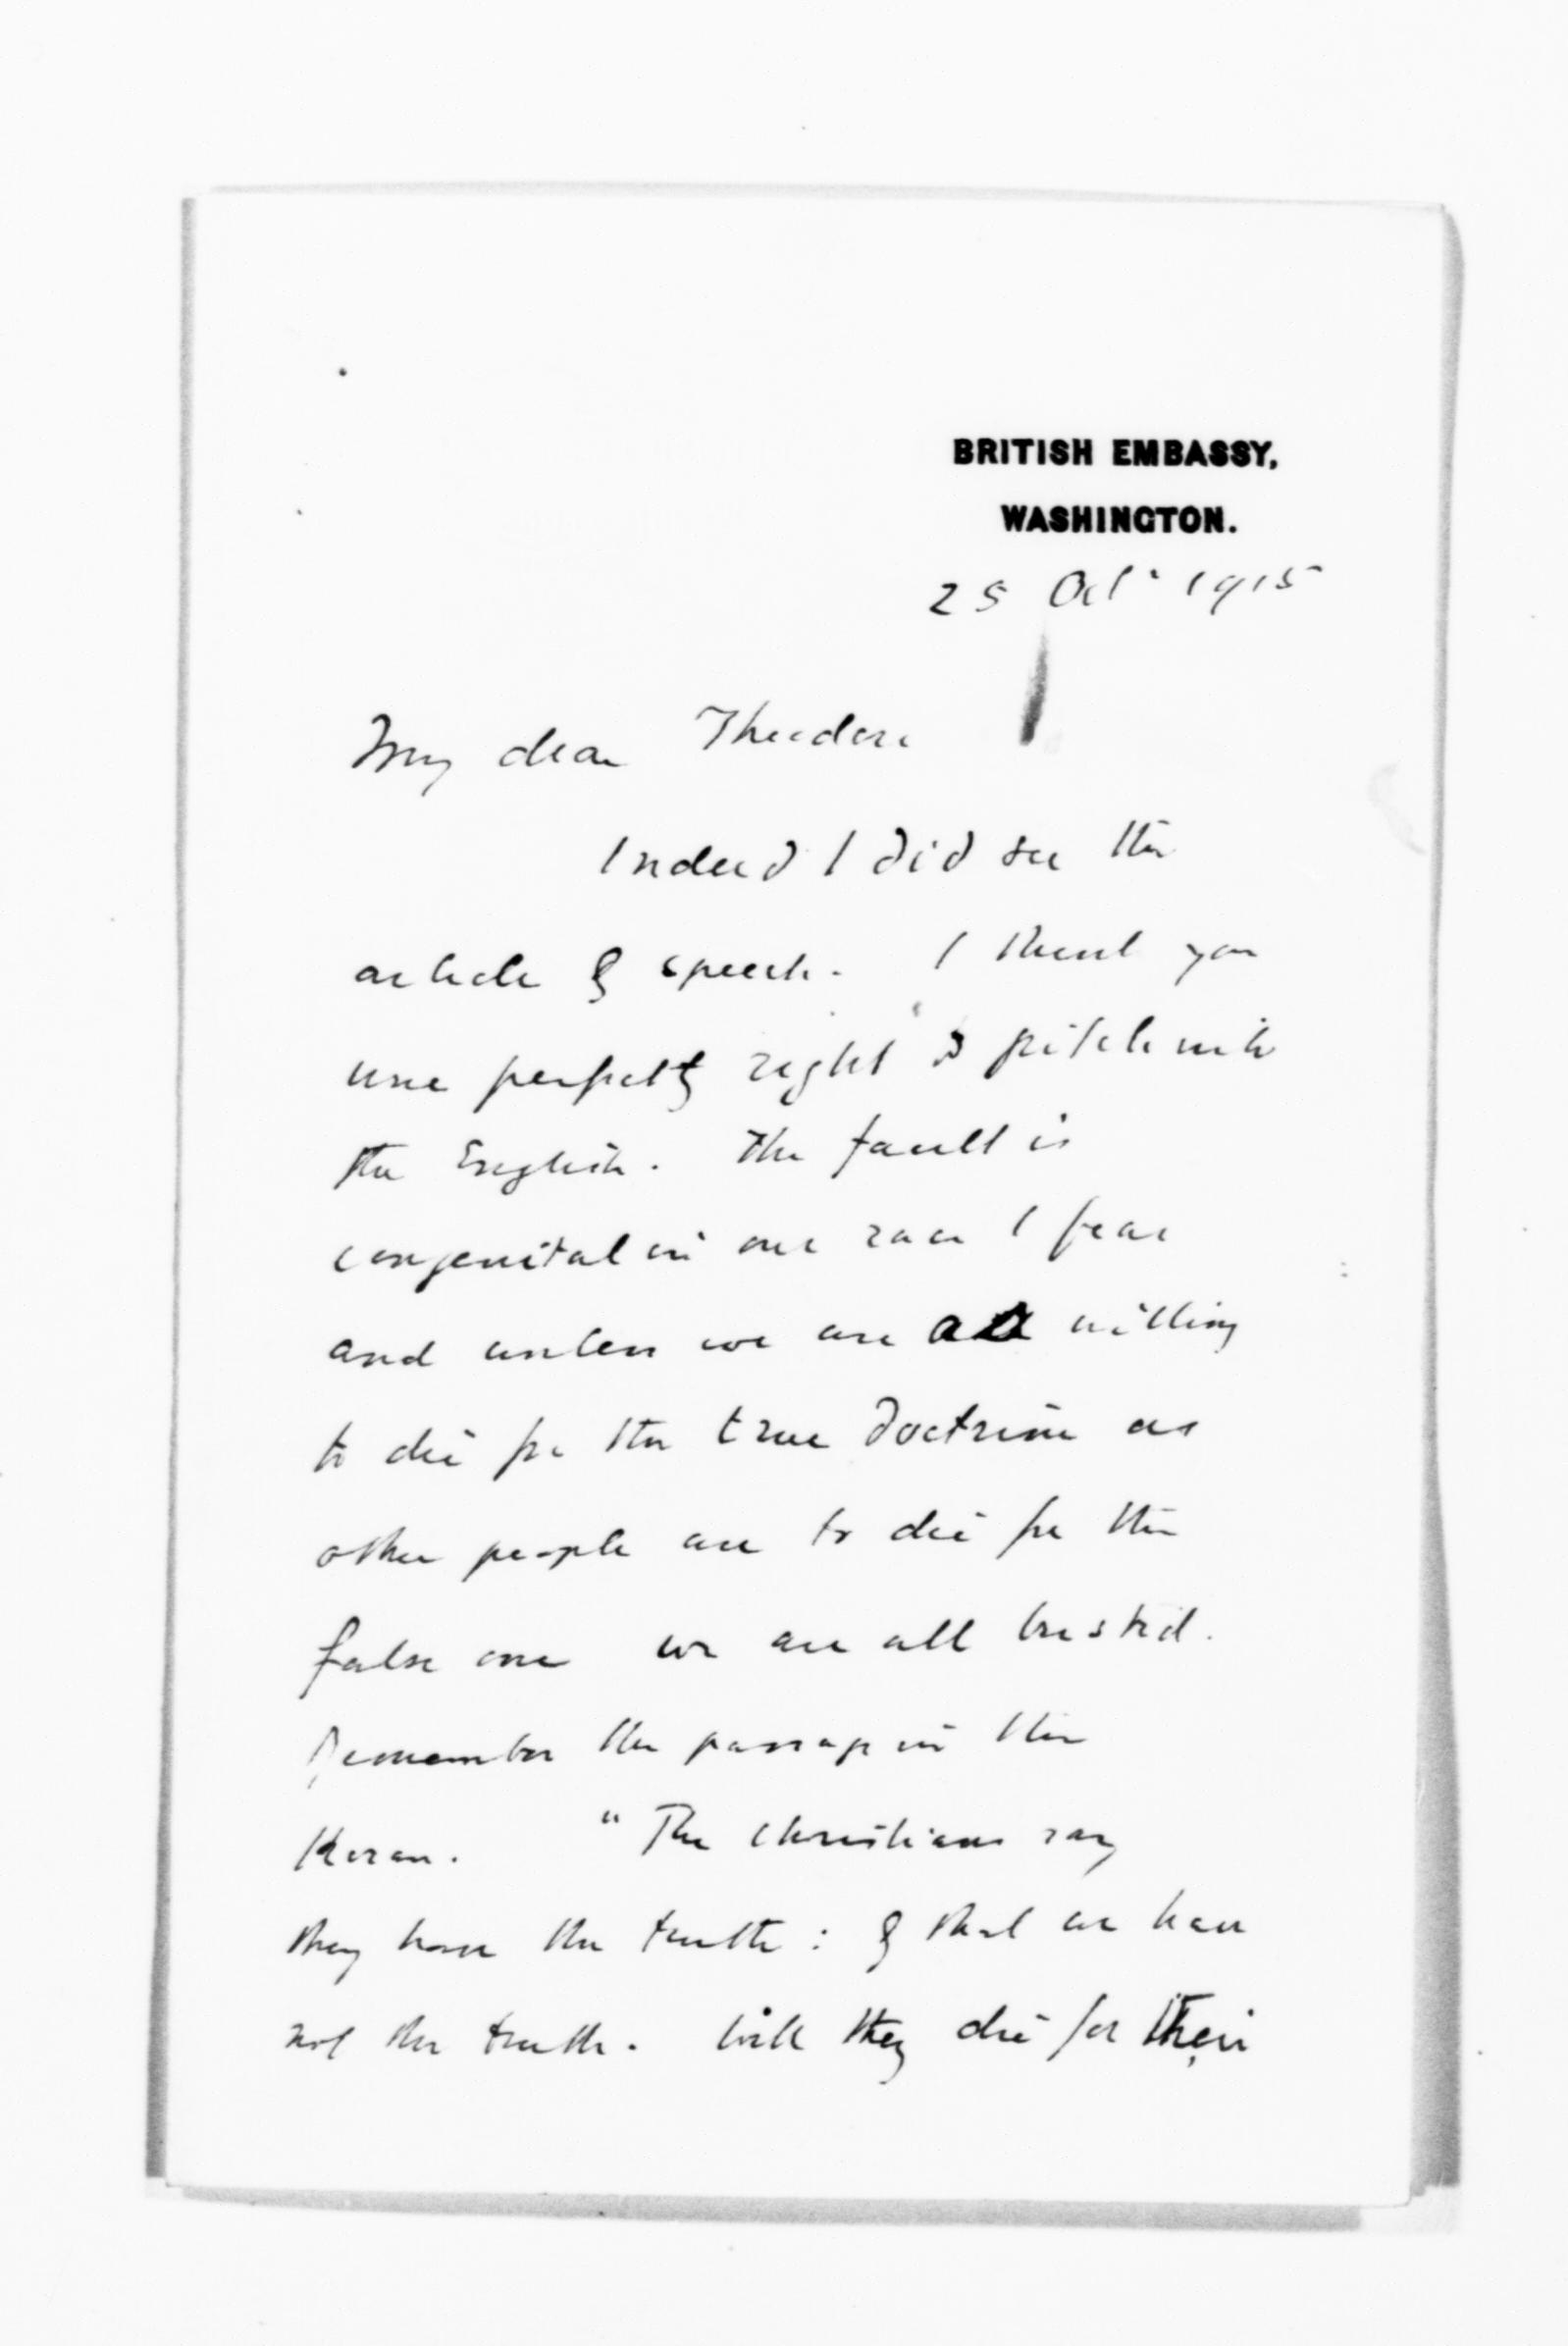 BRITISH EMBASSY,
WASHINGTON.
25 Oct. 1915
My dear Theodore
Indeed I did see the
article & speech. I think you
were perfectly right to pitch into
the English. The fault is
congenital in our race I fear
and unless we are as willing
to die for the true doctrine as
other people are to die for the
false one we are all busted.
Remember the passage in the
Koran. "The Christians say
they have the truth: & that we have
not the truth. Will they die for their